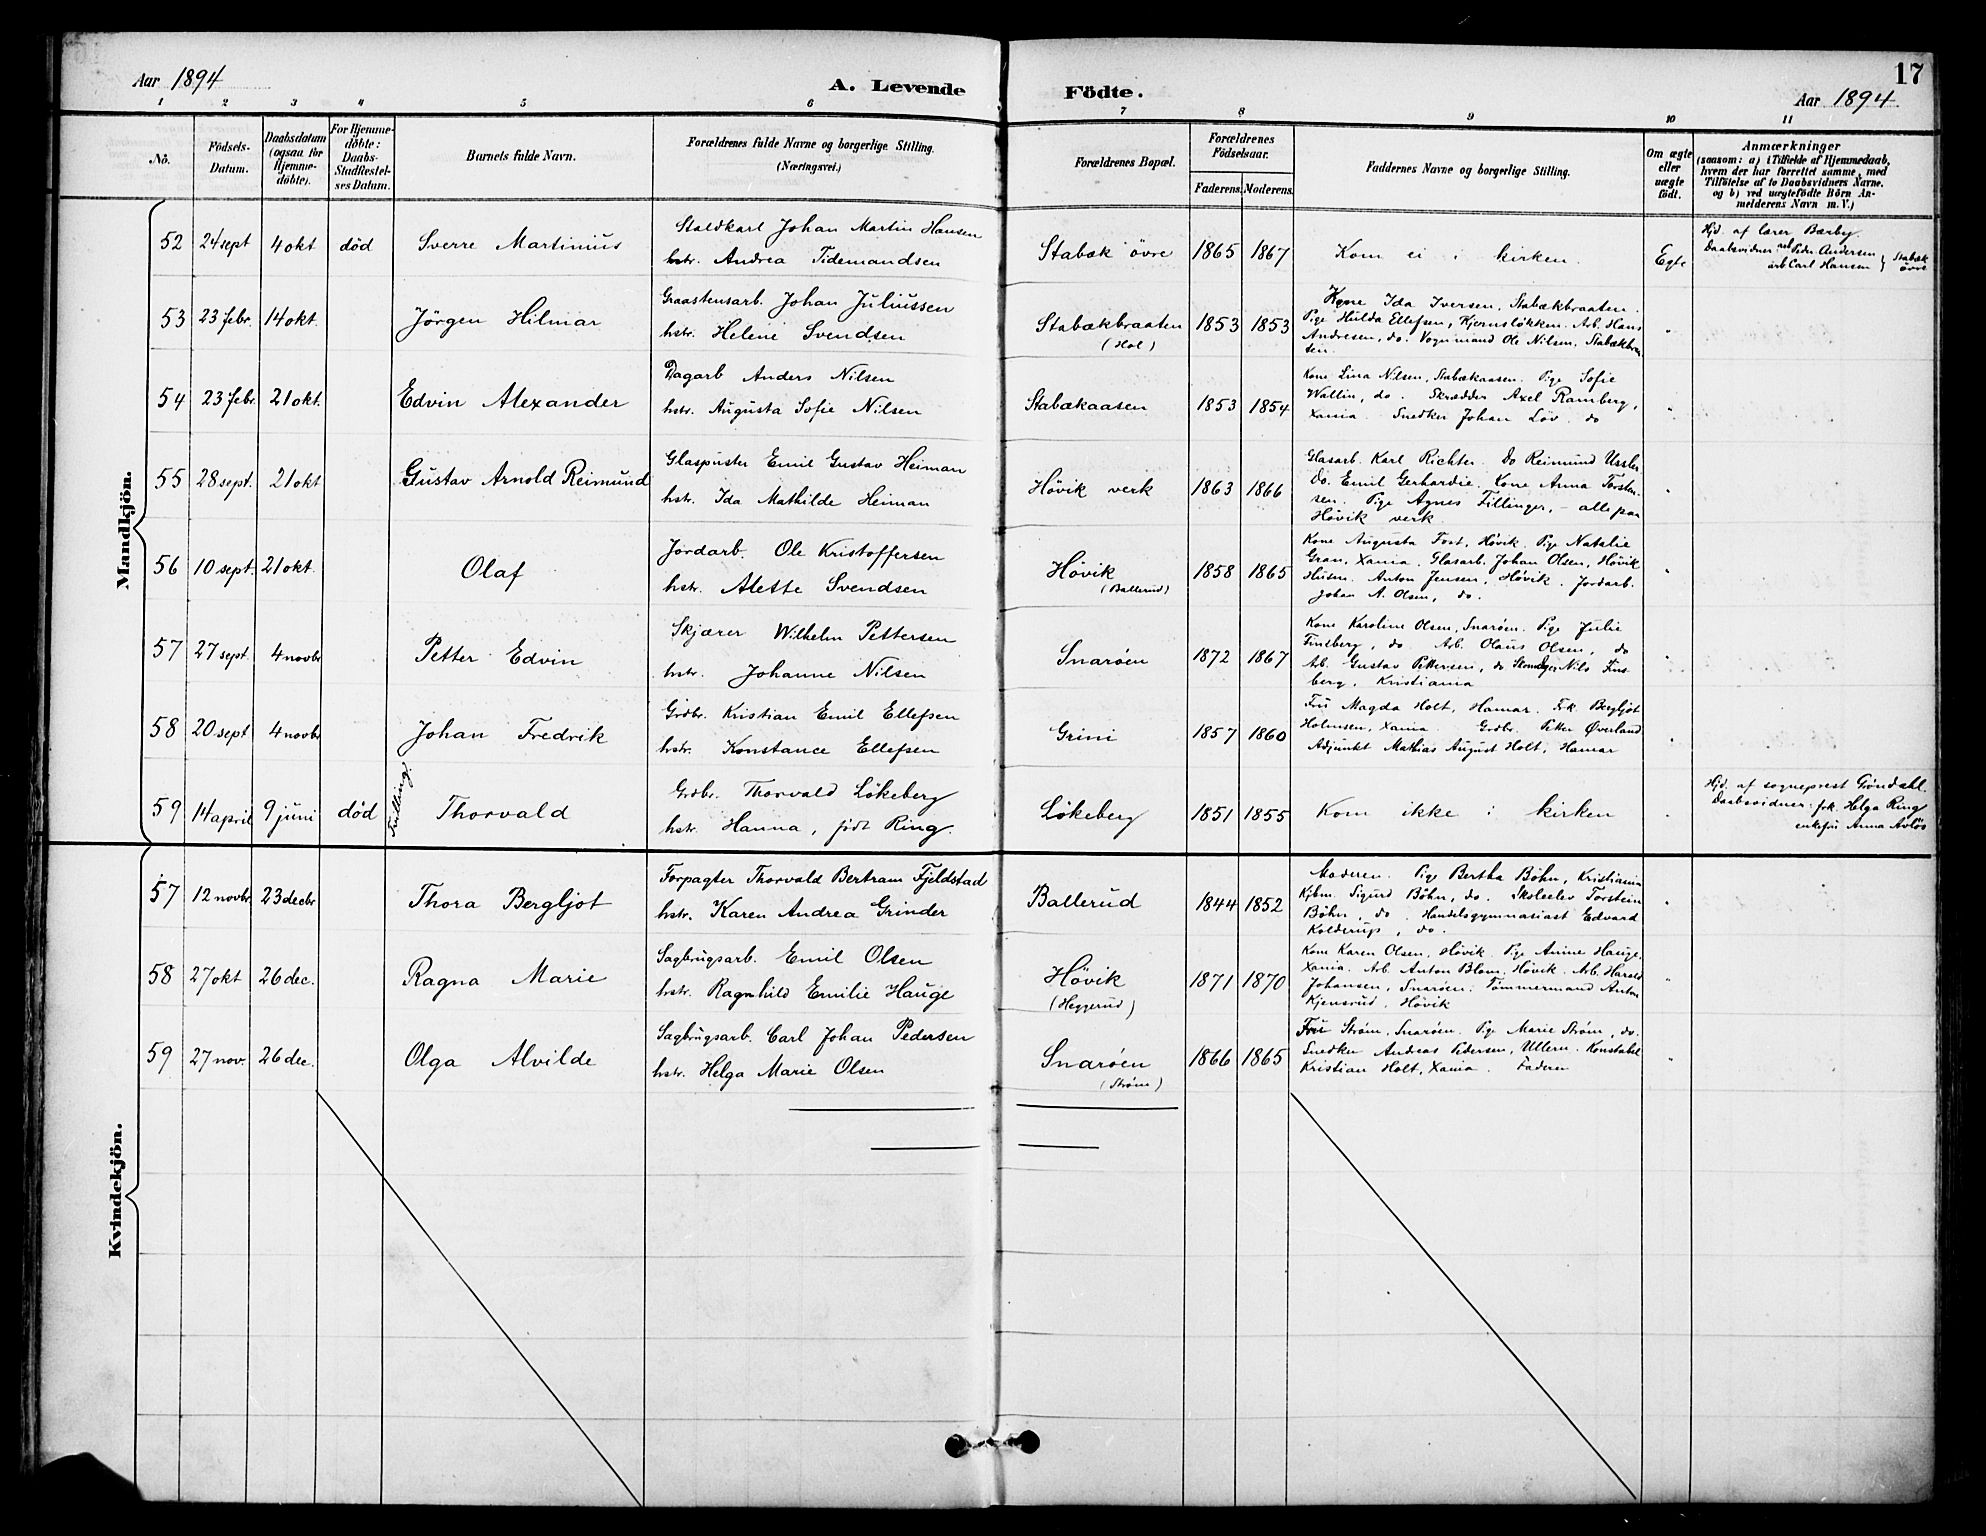 Aar 1894
A. Levende
Födte.
17
Aar 1894
1 2 3 4 5 6 7 8 9 10 11
No.
Födsels-
Datum.
Daabsdatum
(ogsaa for
Hjemme-
döbte).
For Hjemme-
döbte:
Daabs-
Stadfæstel-
ses Datum.
Barnets fulde Navn.
Forældrenes fulde Navne og borgerlige Stilling.
(Næringsvei.)
Forældrenes Bopæl.
Forældrenes
Födselsaar.
Faderens. Moderens.
Faddernes Navne og borgerlige Stilling.
Om ægte
eller
uægte
födt.
Anmærkninger
(saasom: a) i Tilfælde af Hjemmedaab,
hvem der har forrettet samme, med
Tilföielse af to Daabsvidners Navne,
og b) ved uægtefödte Börn An-
melderens Navn m. V.)
Mandkjön.
52 24 sept 4 okt död Sverre Martinius
Staldkarl Johan Martin Hansen
hstr. Andrea Tidemandsen
Stabæk øvre 1865 1867
Kom ei i kirken.
Egte
Hjd. af lærer Bærby.
Daabsvidner Peder Andersen
arb Carl Hansen } Stabæk
øvre
53 23 febr. 14 okt. Jörgen Hilmar
Graastensarb. Johan Juliussen
hstr. Helene Svendsen
Stabækbraaten
(Hol)
1853 1853
Kone Ida Iversen, Stabækbraaten.
Pige Hulda Ellefsen, Kjernsløkken. Arb. Hans
Andresen, do. Vognmand Ole Nilsen, Stabækbraa-
ten.
"
54 23 febr. 21 okt. Edvin Alexander
Dagarb Anders Nilsen
hstr. Augusta Sofie Nilsen
Stabækaasen 1853 1854
Kone Lina Nilsen, Stabækaasen. Pige Sofie
Wallin, do. Skrædder Axel Ramberg,
Xania. Snedker Johan Löv. do
"
55 28 sept. 21 okt Gustav Arnold Reimund
Glaspuster Emil Gustav Heiman
hstr. Ida Mathilde Heiman
Høvik verk 1863 1866
Glasarb. Karl Richter. Do Reimund Ussler
Do. Emil Gerhardie. Kone Anna Torsten-
sen. Pige Agnes Fillinger, - alle paa
Høvik verk
"
56 10 sept. 21 okt. Olaf
Jordarb. Ole Kristoffersen
hstr. Alette Svendsen
Høvik
(Ballerud)
1858 1865
Kone Augusta Tost, Høvik, Pige Natalie
Gran, Xania. Glasarb. Johan Olsen, Høvik
Husm. Anton Jensen, Høvik. Jordarb.
Johan A. Olsen, do.
"
57 27 sept. 4 novbr Petter Edvin
Skjærer Wilhelm Pettersen
hstr. Johanne Nilsen
Snarøen 1872 1867
Kone Karoline Olsen, Snarøen. Pige Julie
Finsberg, do Arb. Olaus Olsen, do
Arb. Gustav Pettersen, do Nils Fins-
berg, Kristiania
"
58 20 sept 4 novbr Johan Fredrik
Grdbr. Kristian Emil Ellefsen
hstr. Konstance Ellefsen
Grini 1857 1860
Fru Magda Holt, Hamar. Frk. Bergljot
Holmsen, Xania. Grdbr. Petter Øverland
Adjunkt Mathias August Holt, Hamar
"
59 14 april 9 juni död Tvilling. Thorvald
Grdbr. Thorvald Løkeberg
hstr. Hanna, født Ring.
Løkeberg 1851 1855
Kom ikke i kirken
"
Hjd. af sogneprest Gröndahl.
Daabsvidner: frk. Helga Ring
enkefru Anna Avløs
Kvindekjön.
57 12 novbr 23 decbr Thora Bergljot
Forpagter Thorvald Bertram Fjeldstad
hstr. Karen Andrea Grinder
Ballerud 1844 1852
Moderen. Pige Bertha Bøhn, Kristiania
Kjbm. Sigurd Bøhn, do. Skoleelev Torstein
Bøhn, do. Handelsgymnasiast Edvard
Kolderup, do.
"
58 27 okt 26 dec. Ragna Marie
Sagbrugsarb. Emil Olsen
hstr. Ragnhild Emilie Hauge
Høvik
(Heggerud)
1871 1870
Kone Karen Olsen, Høvik. Pige Anine Hauge,
Xania. Arb. Anton Blom. Høvik. Arb. Harald
Johansen, Snarøen. Tømmermand Anton
Kjensrud, Høvik
"
59 27 nov. 26 dec. Olga Alvilde
Sagbrugsarb. Carl Johan Pedersen
hstr. Helga Marie Olsen
Snarøen
(Strøm)
1866 1865
Fru Strøm, Snarøen. Pige Marie Strøm, do.
Snedker Andreas Pedersen, Ullern. Konstabel
Kristian Holt, Xania. Faderen
"